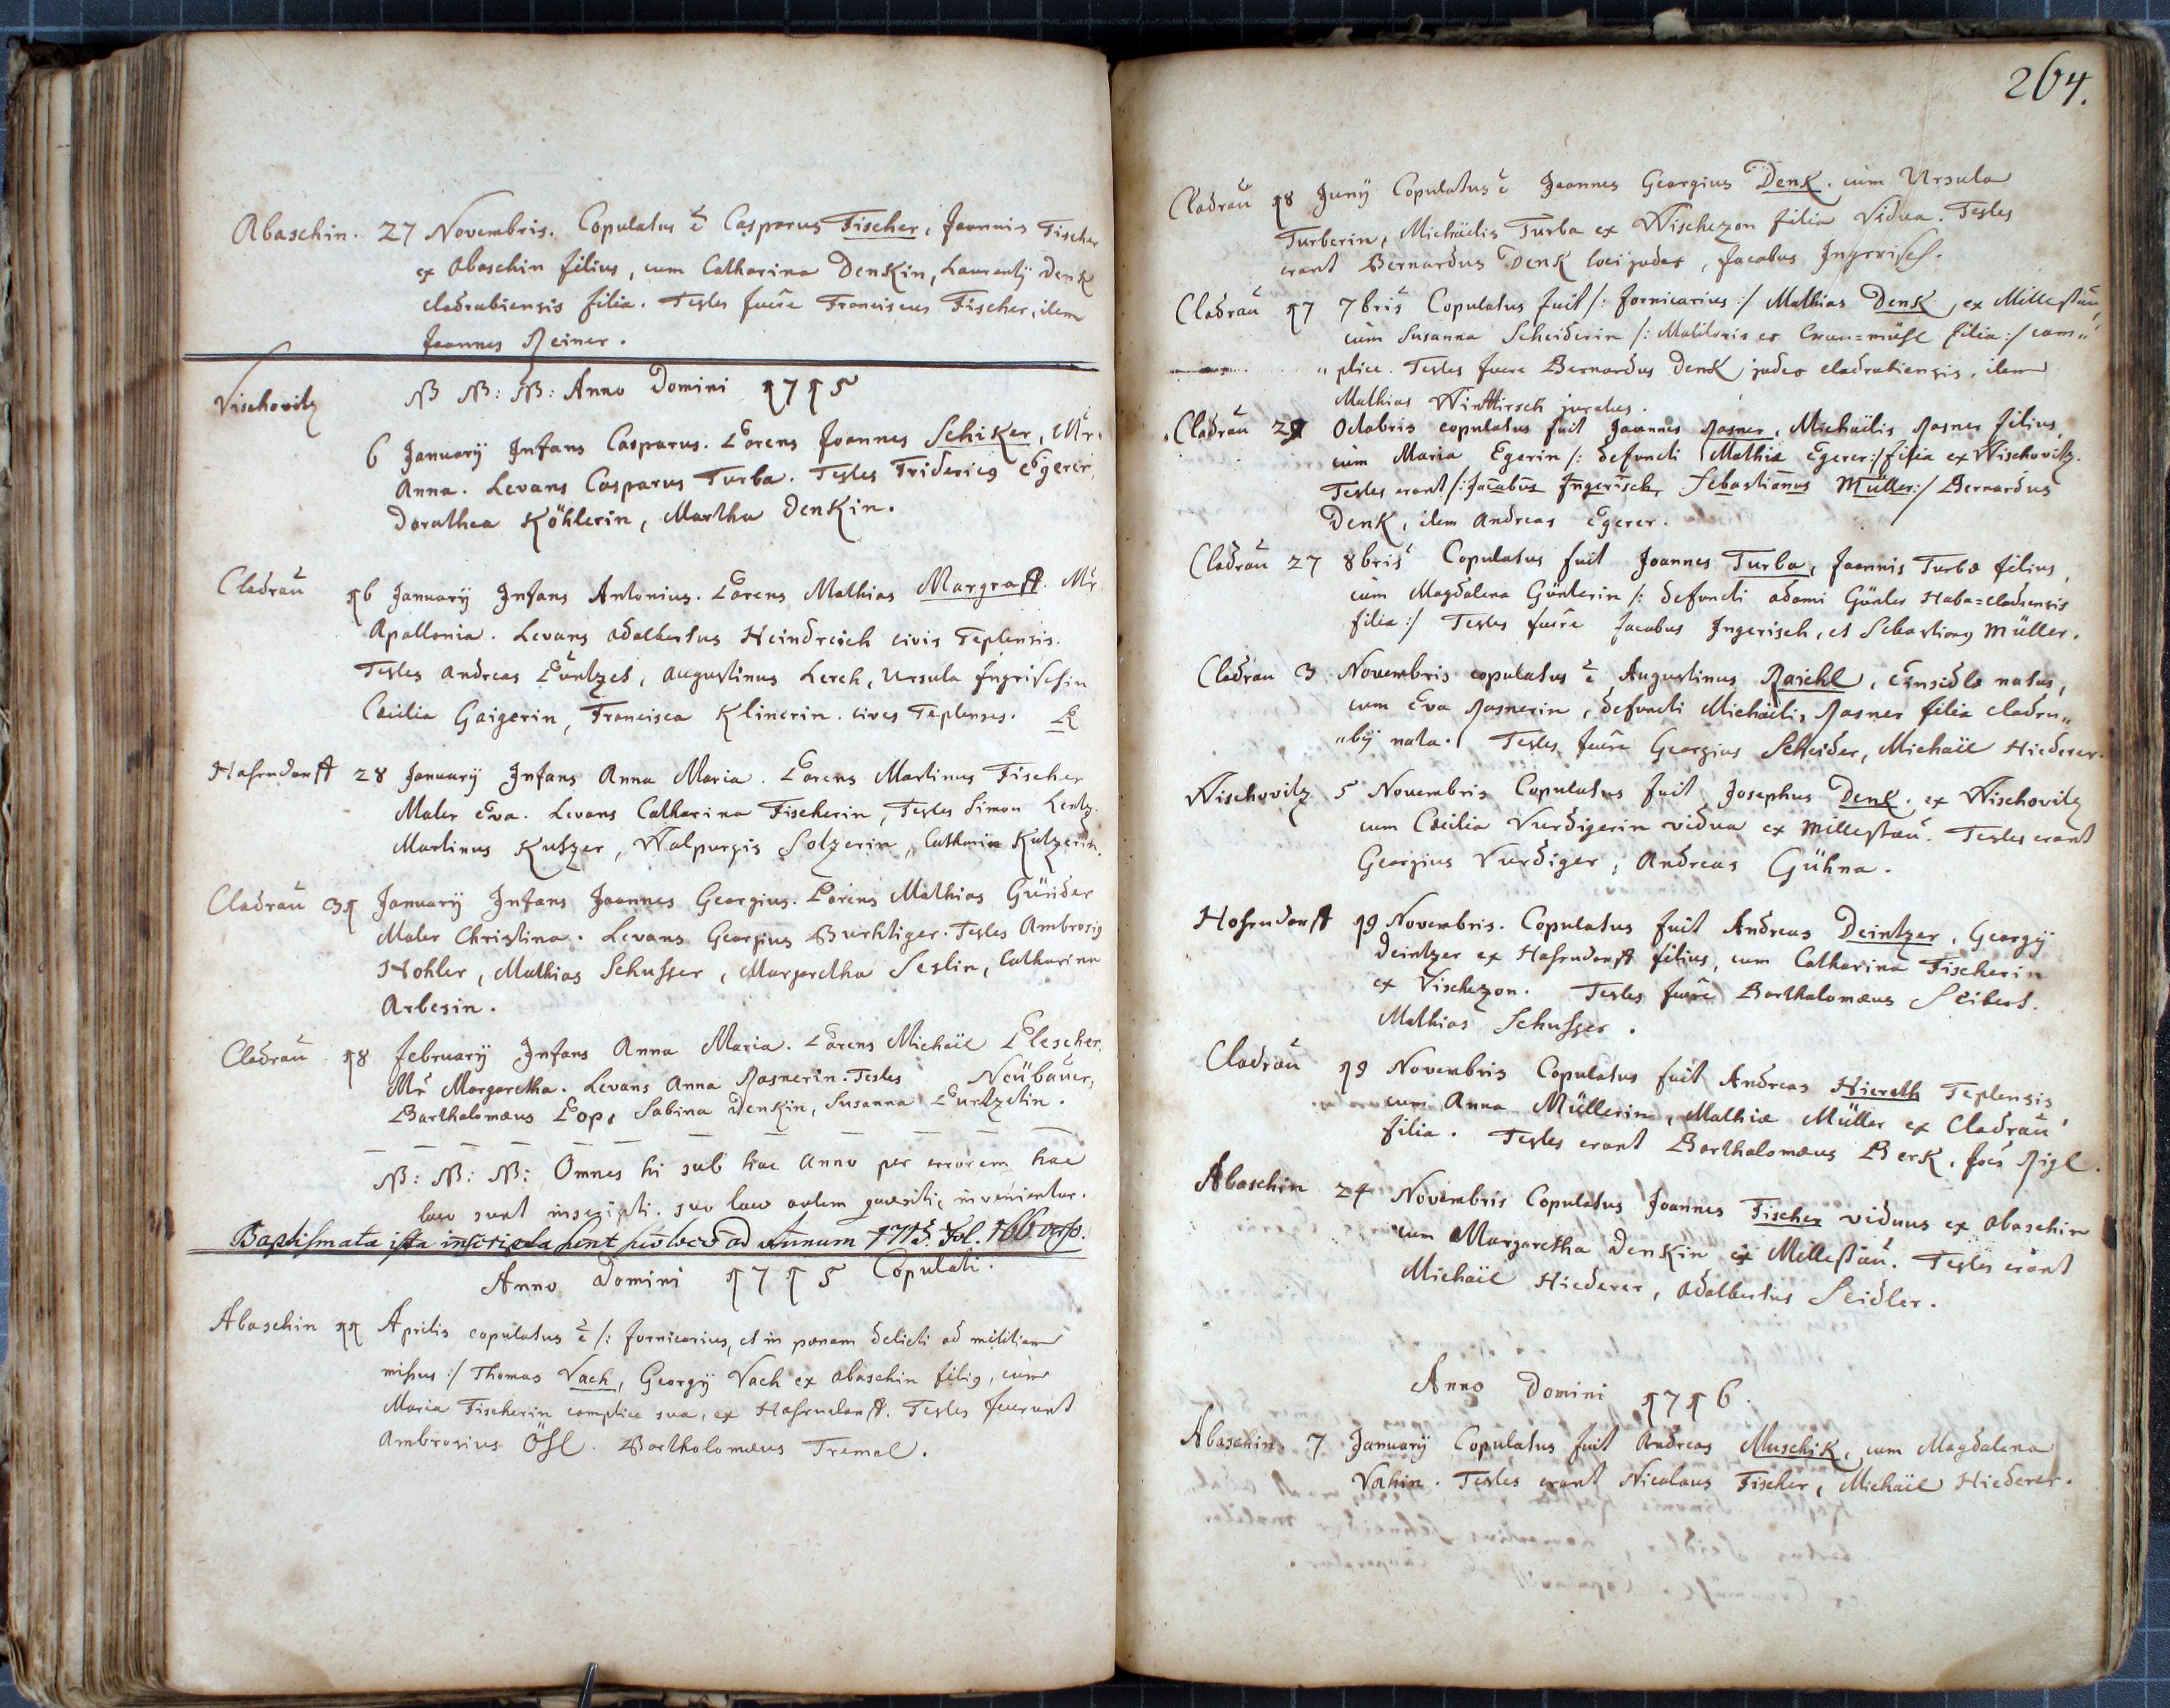 Abaschin. 27 Novembris. Copulatus ẽ Casparus Fischer, Joannis Fischer
ex Abaschin filius, cum Catharina Denkin, Laurentÿ Denk
cladrubiensis filia. Testes fuêre Franciscus Fischer, item
Joannes Reiner.
Vischovitz NB NB: NB: Anno Domini 1715
6 Januarÿ Infans Casparus. Parens Joannes Schiker, Mr.
Anna. Levans Casparus Turba. Testes Fridericg Egerer
Dorathea Köhlerin, Martha Denkin.
Cladrau 16 Januarÿ Infans Antonius. Parens Mathias Margraff. Mr
Apollonia. Levans Adalbertus Heindreich civis Teplensis.
Testes Andreas Puntzel, Augustinus Lerch, Ursula Ingrischin
Cæcilia Gaigerin, Francisca Klinerin. cives Teplenses.
Hahrndorff 28 Januarÿ Infans Anna Maria. Parens Martinus Fischer
Mater Eva. Levans Catharina Fischerin, Testes Simon Lentz.
Martinus Kutzer, Walpurgis Soltzerin, Catharin Kutzerin.
Cladrau 31 Januarÿ Infans Joannes Georgius. Parens Mathias Günder
Mater Christina. Levans Georgius Burhtiger. Testes Ambrosig
Hohler, Mathias Schusser, Margaretha Seslin, Catharina
Arbesin.
Cladrau 18 februarÿ Infans Anna Maria. Parens Michäel Plescher,
Mr Margaretha. Levans Anna Rasnerin. Testes Neübauer,
Bartholomæus Pop, Sabina Denkin, Susanna Puntzelin.
NB: NB: NB: Omnes hi sub hac Anno per errorem hac
loco sunt inscripti. suo loco autem quæsiti, invenientur.
Baptismata ista inscripta sunt suo loco ad Annum 1715. Fol. 166 verso.
Anno Domini 1715 Copulati.
Abaschin 11 Aprilis copulatus ẽ /: fornicarius, et in pœnam delicti ad militiam
missus :/ Thomas Vach, Georgÿ Vach ex Abaschin filig, cum
Maria Fischerin complice sua, ex Hahrndorff. Testes fuerunt
Ambrosius Öhl. Bartholomæus Tremel.
264.
Cladrau 18 Junÿ Copulatus ẽ Joannes Georgius Denk. cum Ursula
Turberin, Michäelis Turba ex Wischezon filia Vidua. Testes
erant Bernardus Denk loci judex, Jacobus Ingrisch.
Cladrau 17 7bris Copulatus fuit /: fornicarius :/ Mathias Denk, ex Millestau,
cum Susanna Scheiderin /: Molitoris ex mühl filia :/ com"
"plice. Testes fuere Bernardus Denk judex cladrubiensis, item
Mathias Winttirsch juratus.
Cladrau 29 Octobris copulatus fuit Joannes Rasner, Michäelis Rasner filius,
cum Maria Egerin /: defuncti Mathiæ Egerer :/ filia ex Wischovitz.
Testes erant /: Jacobus Ingerisch, Sebastianus Müller :/ Bernardus
Denk, item Andreas Egerer.
Cladrau 27 8bris Copulatus fuit Joannes Turba, Joannis Turbæ filius,
cum Magdalena Günterin /: defuncti Adami Günter Haba=cladrensis
filia :/ Testes fuêre Jacobus Ingerisch, et Sebastiang Müller.
Cladrau 3 Novembris copulatus ẽ Augustinus Raichl, Einsidlæ natus,
cum Eva Rasnerin, defuncti Michäelis Rasner filia cladru"
"bÿ nata. Testes fuêre Georgius Scheider, Michäel Hiederer.
Wischovitz 5 Novembris Copulatus fuit Josephus Denk. ex Wischovitz
cum Cæcilia Vurdigerin vidua ex Millestau. Testes erant
Georgius Vurdiger, Andreas Gühna.
Hahrndorff 19 Novembris. Copulatus fuit Andreas Deintzer, Georgÿ
Deintzer ex Hahrndorff filius, cum Catharina Fischerin
ex Vischezon. Testes fuêre Bartholomæus Seibert.
Mathias Schusser.
Cladrau 19 Novembris Copulatus fuit Andreas Hiereth Teplensis
cum Anna Müllerin, Mathiæ Müller ex Cladrau
filia. Testes erant Bartholomæus Berk, Joes Rigl.
Abaschin 24 Novembris Copulatus Joannes Fischer viduus ex Abaschin
cum Margaretha Denkin ex Millestau. Testes erant
Michäel Hiederer, Adalbertus Seidler.
Anno Domini 1716.
Abaschin 7 Januarÿ Copulatus fuit Andreas Muschik, cum Magdalena
Vahin. Testes erant Nicolaus Fischer, Michäel Hiederer.